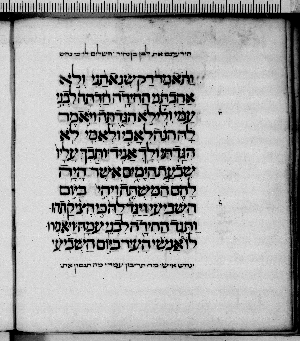 ותאמר רק שנאתני ולא
אהבתני החידה חדת לבני
עמי ולי לא הגדתה ויאמר
לה הנה לאבי ולאמי לא
הגדתי ולך אגיד ותבך עליו
שבעת הימים אשר היה
להם המשתה ויהי ביום
השביעי ויגד לה כי הציקתהו
ותגד החידה לבני עמה ויאמרו
לו אנשי העיר ביום השביעי